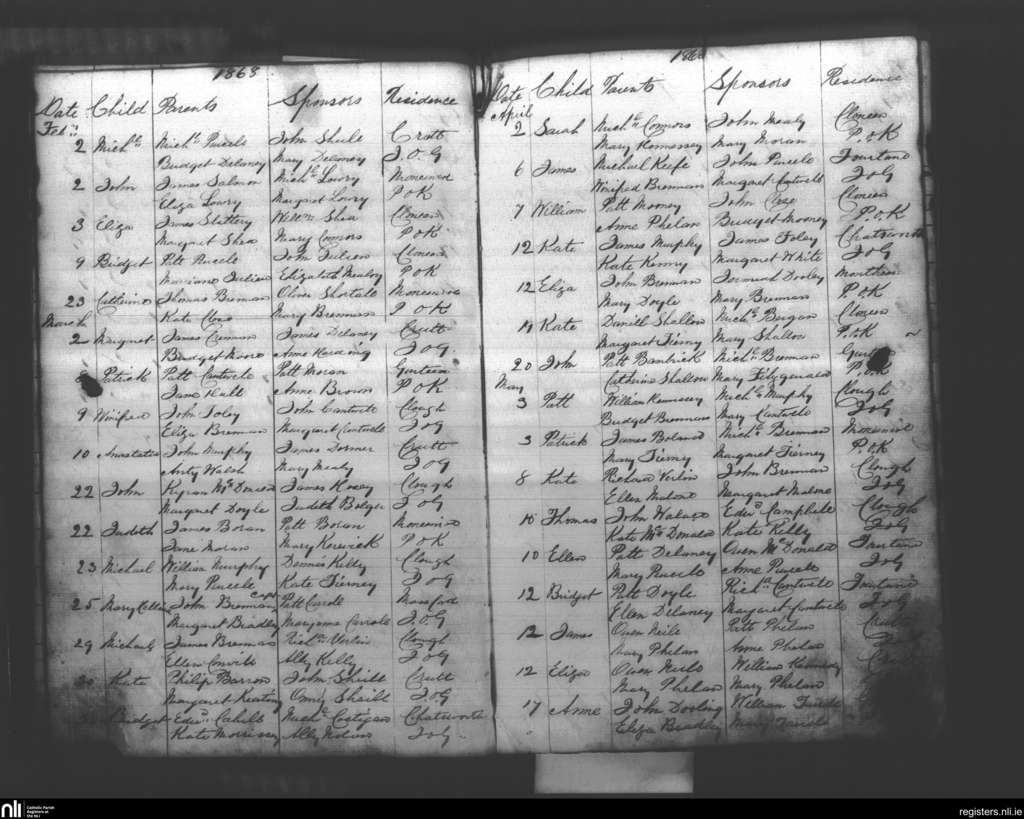 1863
Date Child Parents Sponsors Residence
Feb
2 Mich.l Mich.l Purcele John Sheile Crutt
Budget Delaney Mary Delaney J.O.G
2 John James Salmon Mich.l Lowry Moneenroe
Eliza Lowry Margaret Lowry P.O.K
3 Eliza James Slattery Will.m Shea Cloneen
Margaret Shea Mary Connors P.O.K
9 Bridget Patt Purcele John Cloneen
Elizabeth Mealoy P.O.K
23 Catherine Thomas Brennan Oliver Shortale
Kate Mary Brennan P.O.K
March
2 Margaret James Brennan James Delaney Crutt
Bridget Moore Anne Harding J.O.G.
Patrick Patt Cantwele Patt Moran Gurteen
Jane Hall Anne Brown P.O.K
9 Winifred John Foley John Cantwele Clough
Eliza Brennan Margaret Cantwele J.O.G
10 Anastatia John Murphy James Dormer Crutt
Anty Walsh Mary Mealy J.O.G
22 John Kyran McDonald James Clough
Margaret Doyle Judith Bolger J.O.G
22 Judith James Boran Patt Boran Moneenroe
Jane Moran Mary P.O.K
23 Michael William Murphy Dennis Kelly Clough
Mary Purcele Kate Tierney J.O.G
25 Mary Ellen John Brennan Capt Patt Carole
Margaret Bradley Maryanne Carrole J.O.G
29 Michael James Brennan Rich.d Verlin Clough
Ellen Ally Kelly J.O.G
Kate Philip Barron John Sheill Crutt
Margaret Keating Sheill J.O.G
Bridget Edw.d Cahill Mich.l Costigan Chatsworth
Kate Morrissey Ally J.O.G
186
Date Child Parents Sponsors Residence
April
2 Sarah Mich.l Connors John Mealy Cloneen
Mary Hennessey Mary Moran P.O.K
6 James Michael Keefe John Purcele
Winifred Brennan Margaret Cantwell J.O.G
7 William Patt Mooney John Cloneen
Anne Phelan Budget Mooney P.O.K
12 Kate James Murphy James Foley Chatsworth
Kate Kenny Margaret White J.O.G
12 Eliza John Brennan Dooley
Mary Doyle Mary Brennan P.O.K
19 Kate Daniel Shallow Mich.l Cloneen
Margaret Tierny Mary Shallow P.O.K
20 John Patt Bambrick Mich.l Brennan
Catherine Shallow Mary Fitzgerald P.O.K
May
3 Patt William Hennessey Mich.l Murphy Clough
Budget Brennan Mary Cantwele J.O.G
3 Patrick James Boland Mich.l Brennan
Mary Tierny Margaret Tierney P.O.K
8 Kate Richard Verlin John Brennan Clough
Ellen Malone Margaret Malone J.O.G
10 Thomas John Walace Edw.d Camphile Clough
Kate McDonald Kate Kelly J.O.G
10 Ellen Patt Delaney Owen McDonald
Mary Purcele Anne Purcell J.O.G
12 Bridget Patt Doyle Rich.d Cantwele
Ellen Delaney Margaret Cantwele J.O.G
12 James Owen Neile Patt Phelan Crutt
Mary Phelan Anne Phelan
12 Eliza Owen Neile William Kennedy
Mary Phelan Mary Phelan
17 Anne John Dooling William
Eliza Bradley Mary
nli Catholic Parish
Registers at
the NLI
registers.nli.ie